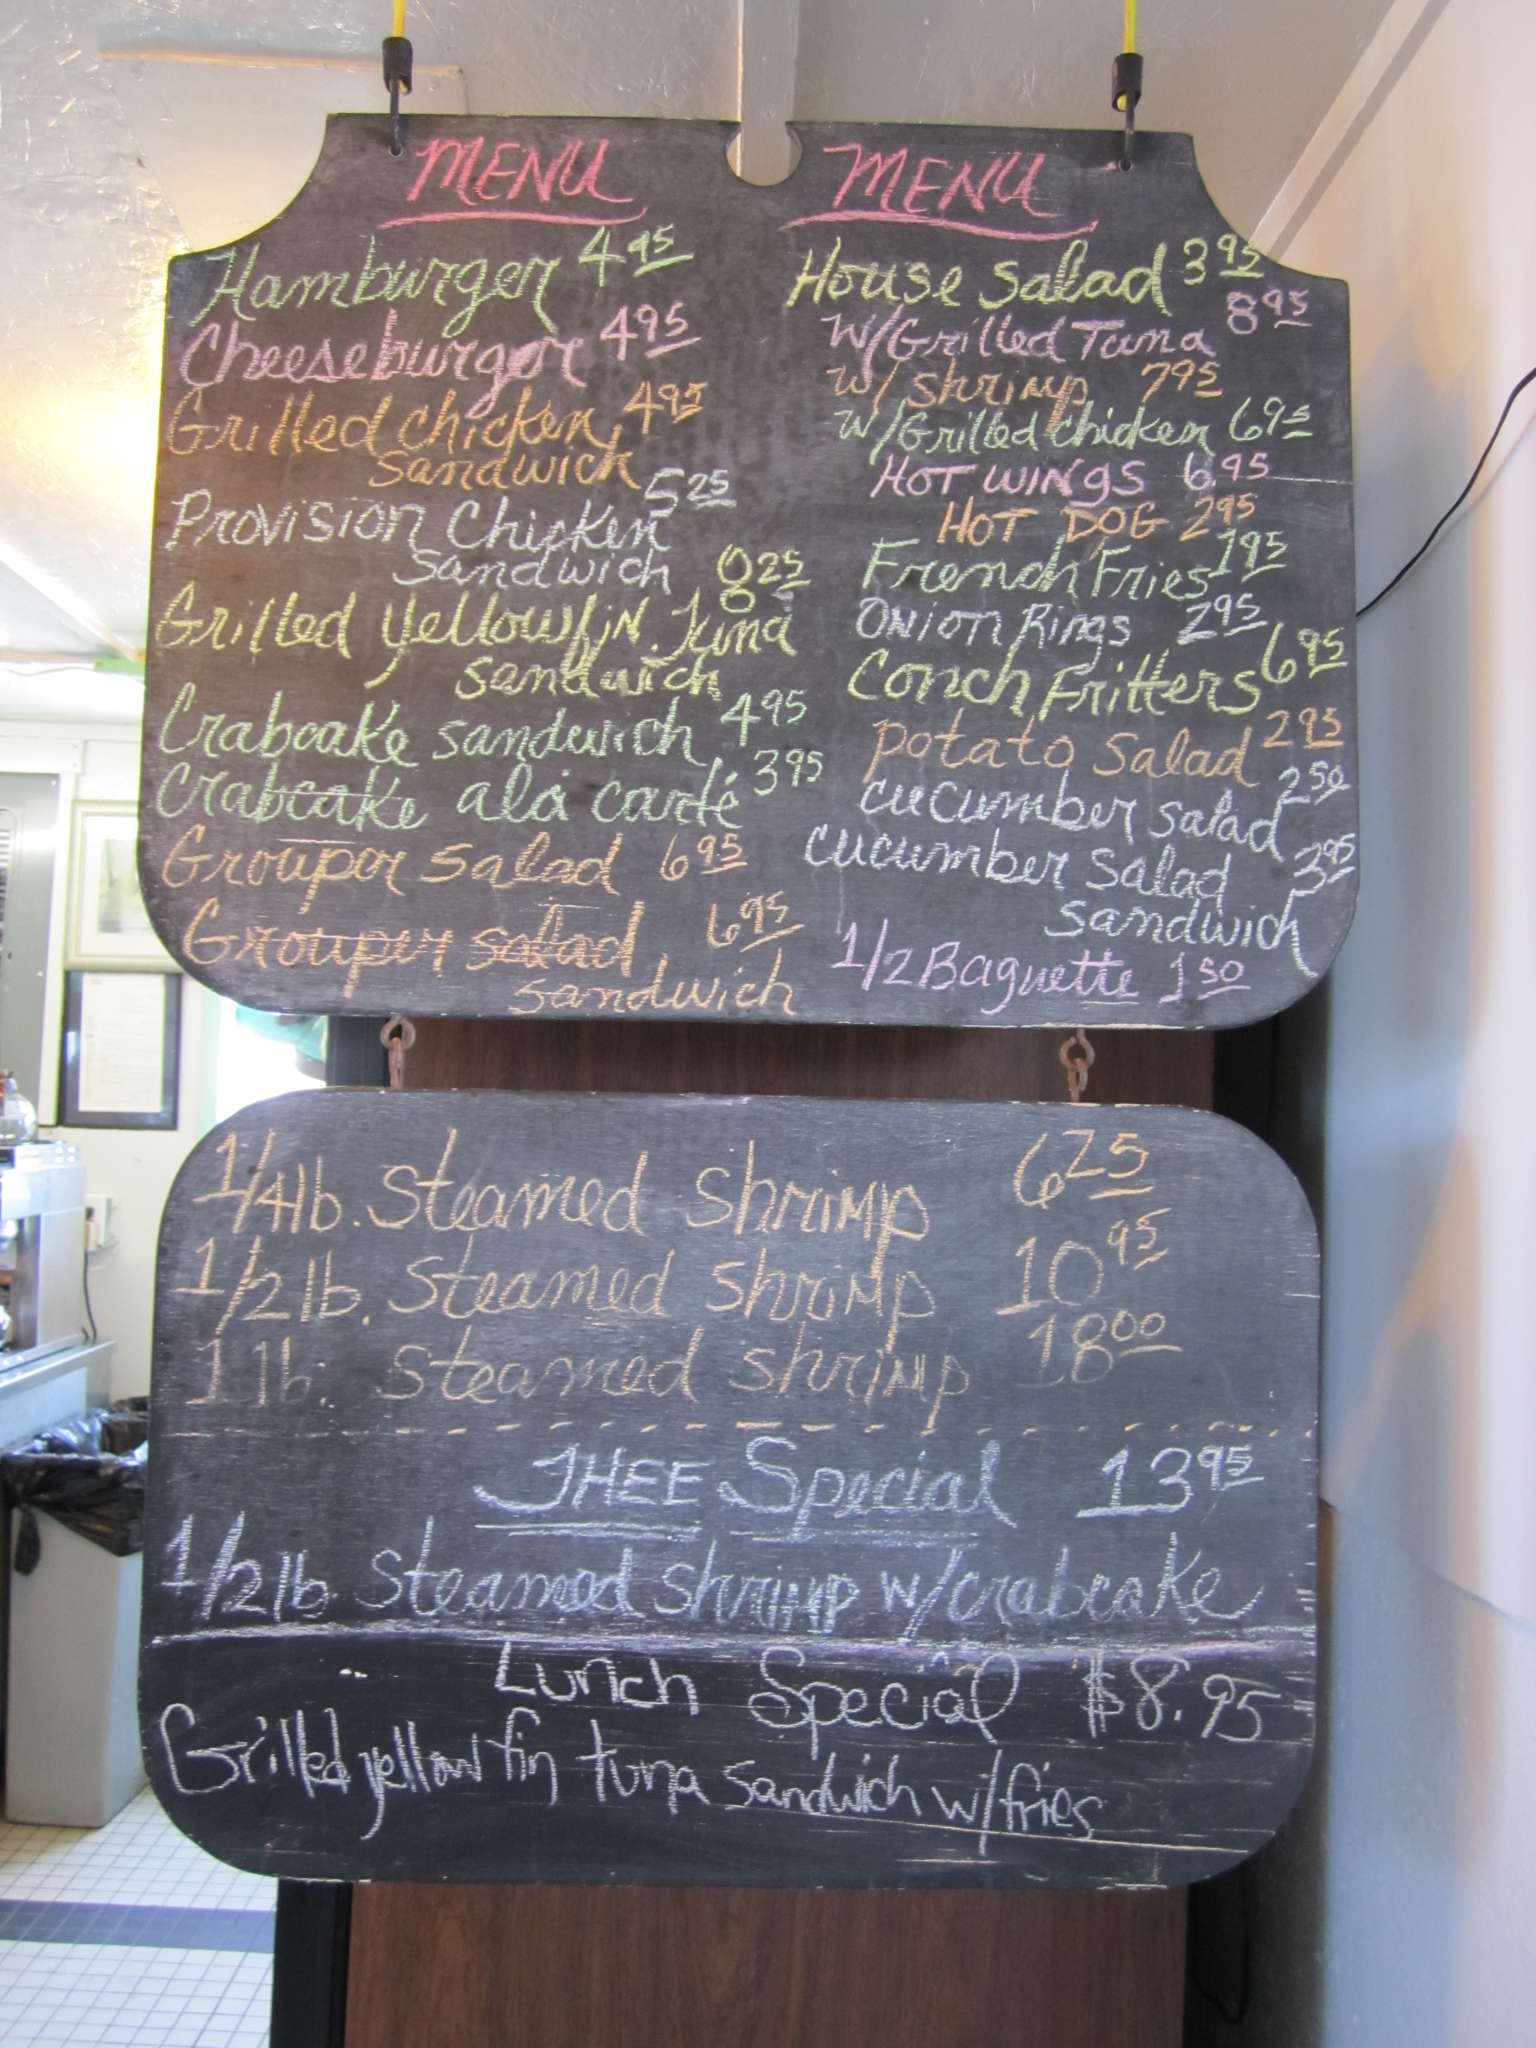 MENU
Hamburger 4.95
Cheeseburger 4.95
Grilled chicken 4.95
sandwich
Provision Chicken 5.25
sandwich
Grilled Yellowfin Tuna 8.25
sandwich
Crabcake sandwich 4.95
Crabcake alá carté 3.95
Grouper salad 6.95
Grouper salad 6.95
sandwich
MENU
House Salad 3.95
W/Grilled Tuna 8.95
W/ shrimp 7.95
W/Grilled chicken 6.95
HOT WINGS 6.95
HOT DOG 2.95
French Fries 1.95
Onion Rings 2.95
Conch Fritters 6.95
potato Salad 2.95
cucumber salad 2.50
cucumber salad 3.95
sandwich
1/2 Baguette 1.50
1/4 lb. steamed shrimp 6.75
1/2 lb. steamed shrimp 10.95
1 lb. steamed shrimp 18.00
THEE Special 13.95
1/2 lb. steamed shrimp w/crabcake
Lunch Special $8.95
Grilled yellow fin tuna sandwich w/fries